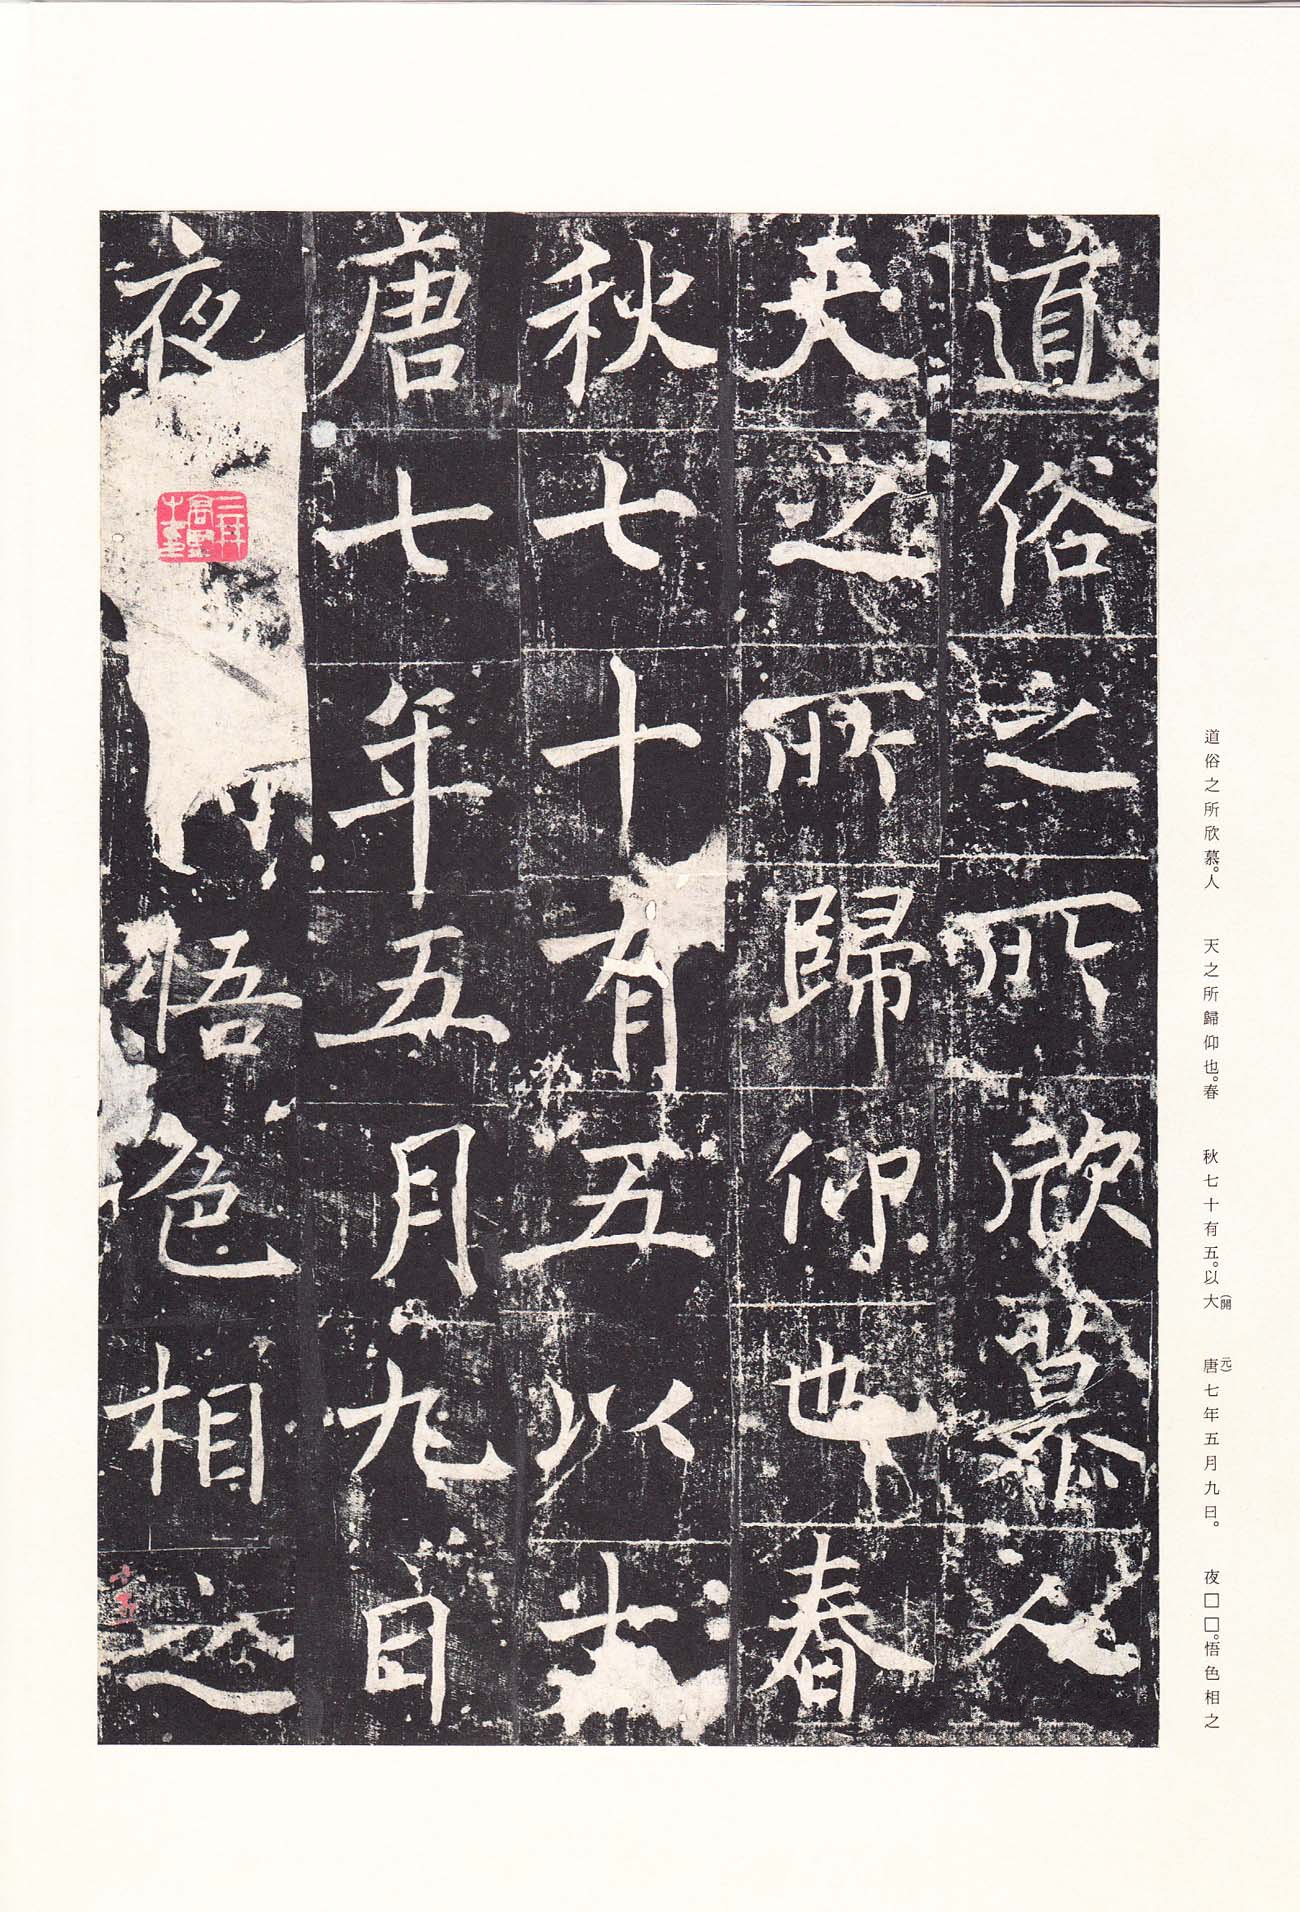 道俗之所欣慕人
天之所歸仰也春
秋七十有五以大
唐七年五月九日
夜悟色相之
道俗之所欣慕。人　天之所歸仰也。春　秋七十有五。以大(開　元)唐七年五月九日。　夜□□。悟色相之